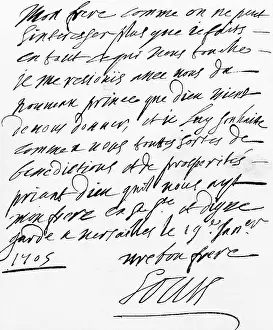 Mon frere comme on ne peut
s'interesser plus que je fais
en tout ce qui vous touche
je me resiouis avec vous du
nouveau prince que dieu vient
de vous donner, et je luy souhaite
comme a vous touttes sortes de
benedictions et de prosperités
priant dieu qu'il vous ayt
mon frere en sa ste et digne
garde a versailles le 19e Janer
1705
vre bon frere
Louis